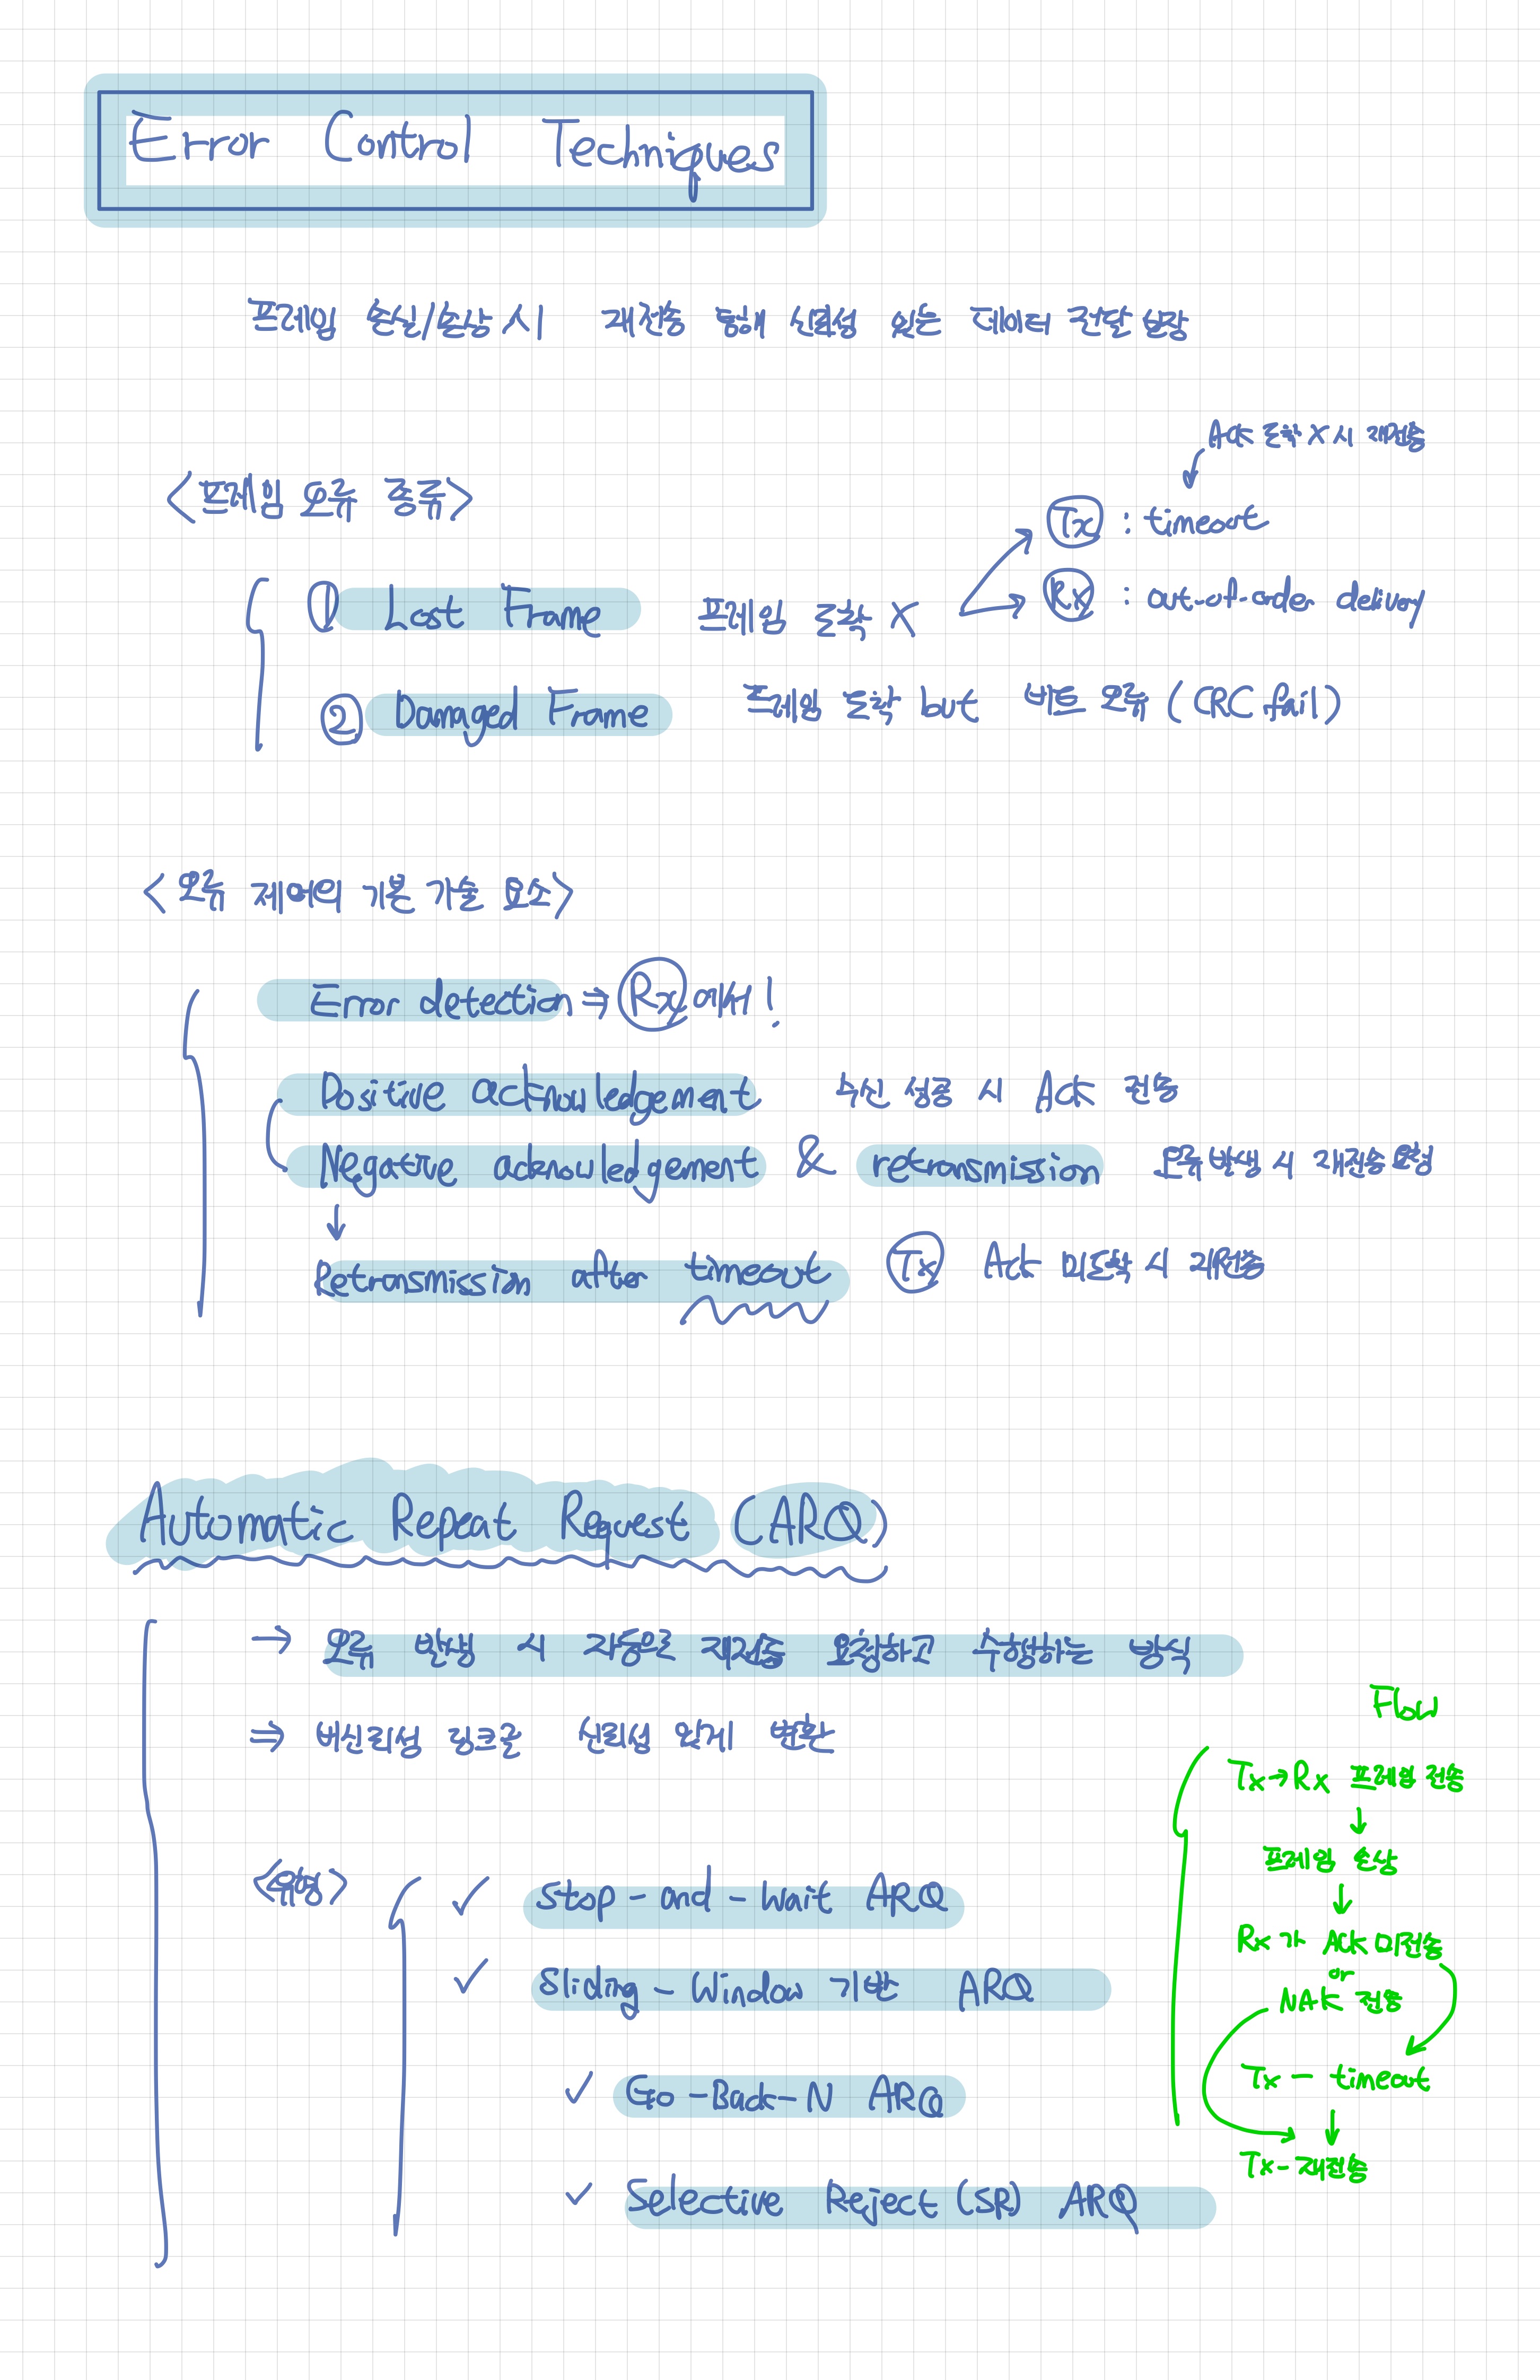 Error Control Techniques
프레임 손실/손상 시 재전송 통해 신뢰성 있는 데이터 전달 보장
<프레임 오류 종류>
Ack 도착 X 시 재전송
① Lost Frame 프레임 도착 X
Tx : timeout
Rx : out-of-order delivery
② Damaged Frame 프레임 도착 but 비트 오류 (CRC fail)
<오류 제어의 기본 기술 요소>
Error detection ⇒ Rx 에서!
Positive acknowledgement 수신 성공 시 Ack 전송
Negative acknowledgement & retransmission 오류 발생 시 재전송 요청
↓
Retransmission after timeout Tx Ack 미도착 시 재전송
Automatic Repeat Request (ARQ)
→ 오류 발생 시 자동으로 재전송 요청하고 수행하는 방식
⇒ 비신뢰성 링크를 신뢰성 있게 변환
<유형>
✓ Stop-and-Wait ARQ
✓ Sliding-Window 기반 ARQ
✓ Go-Back-N ARQ
✓ Selective Reject (SR) ARQ
Flow
Tx→Rx 프레임 전송
↓
프레임 손상
↓
Rx가 ACK 미전송
or
NAK 전송
Tx - timeout
↓
Tx - 재전송